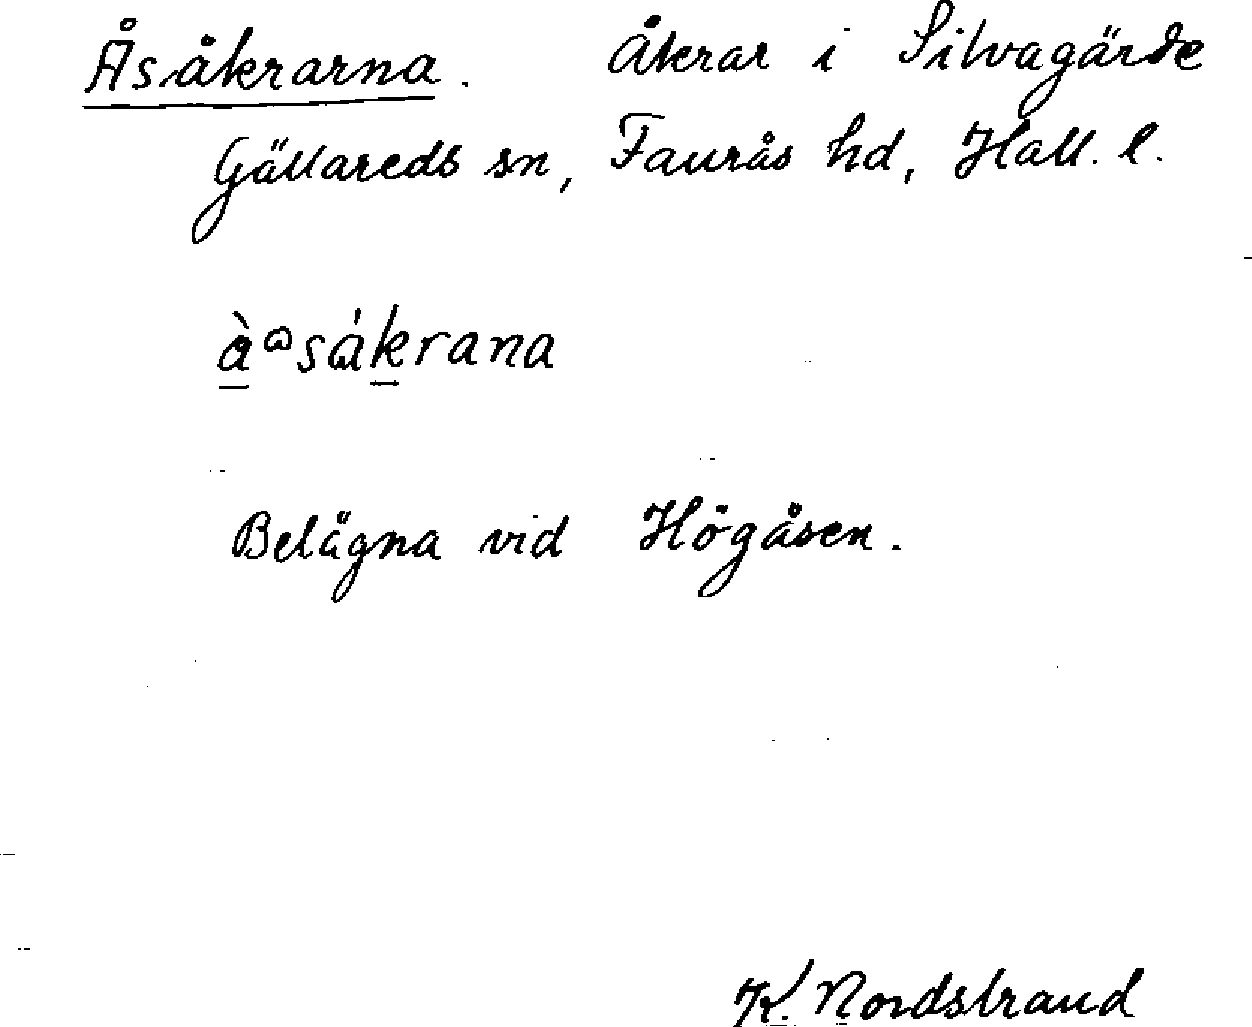 Åsåkrarna. Åkrar i Silvagärde
Gällareds sn, Faurås hd, Hall. l.
Belägna vid Högåsen.
K. Nordstrand